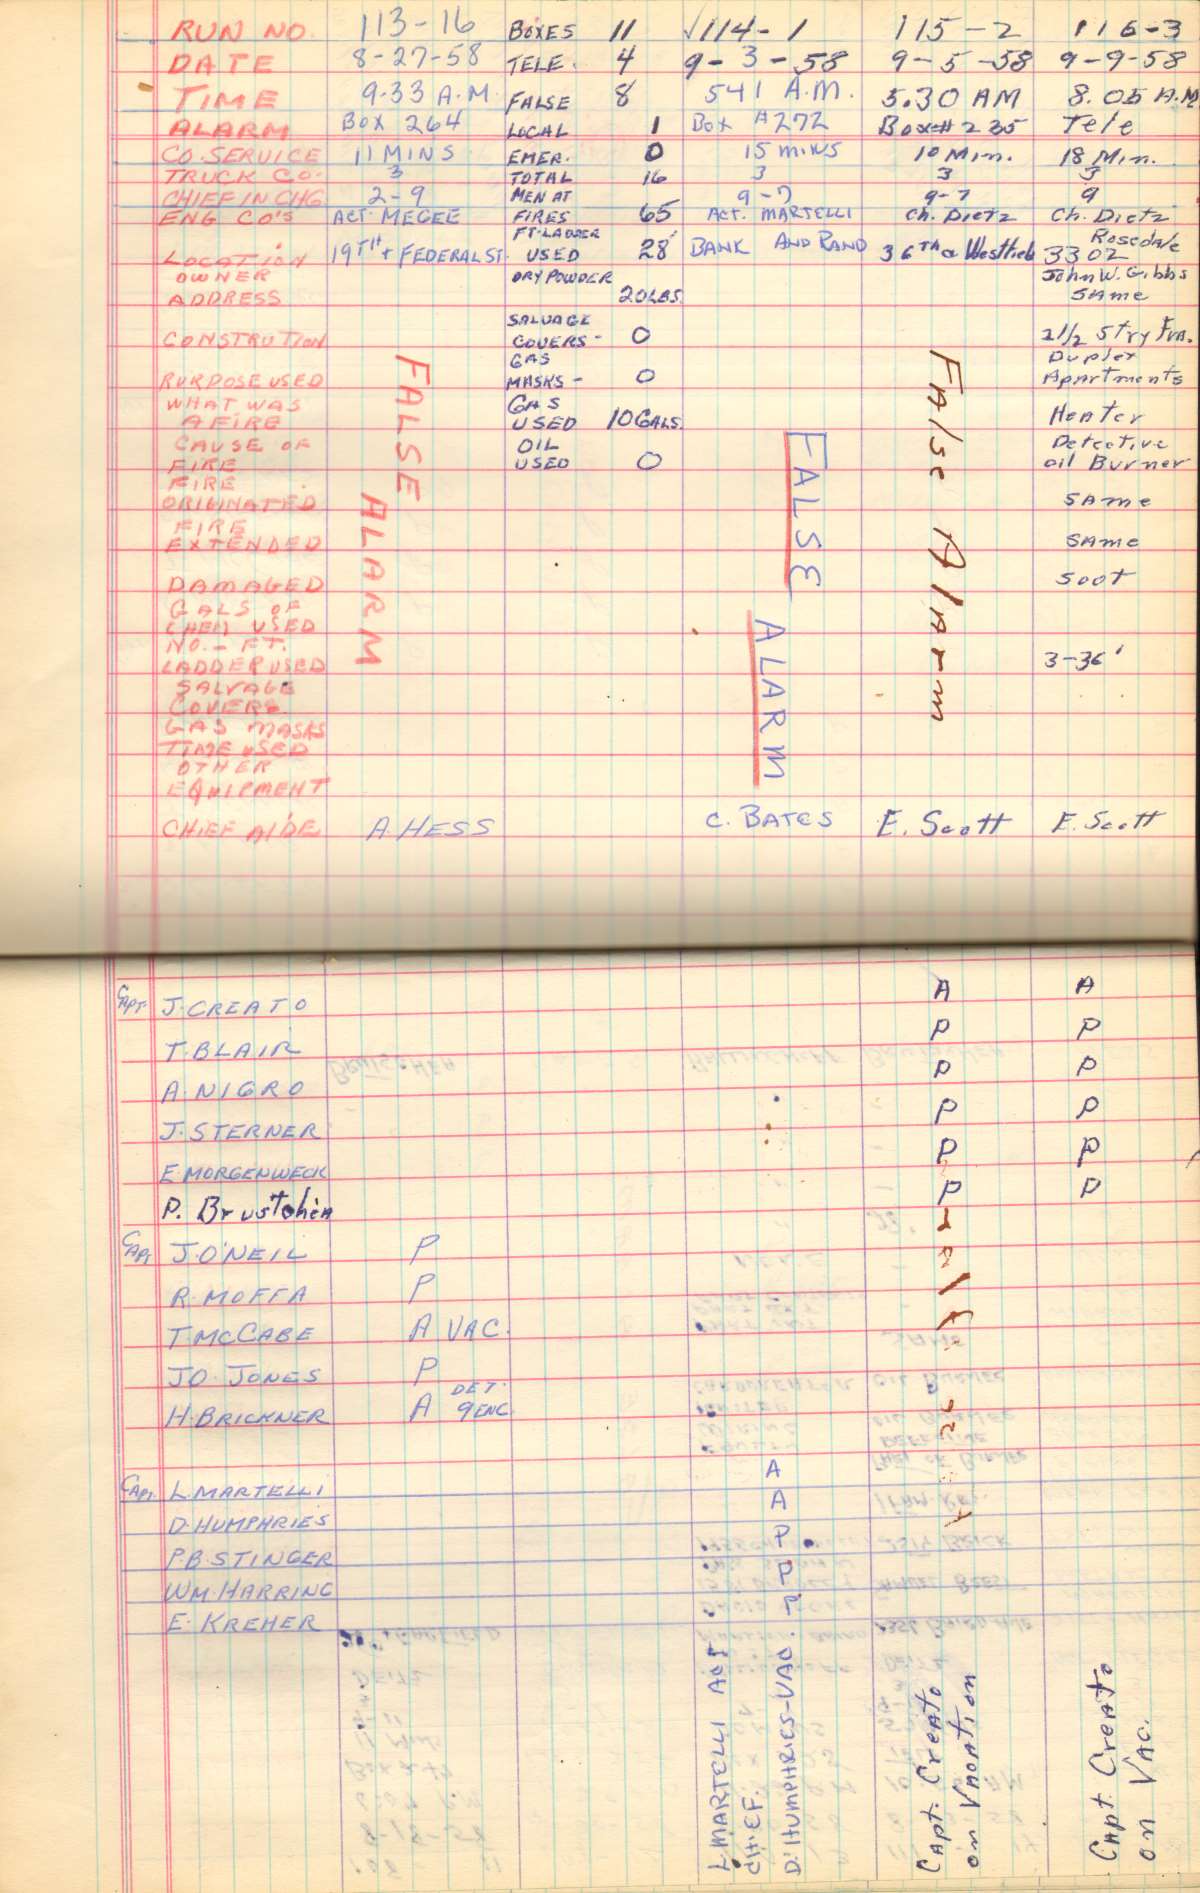 RUN NO. 113-16 BOXES 11 √114-1 115-2 116-3
DATE 8-27-58 TELE. 4 9-3-58 9-5-58 9-9-58
TIME 9.33 A.M. FALSE 8 541 A.M. 5.30 AM 8.05 A.M
ALARM BOX 264 LOCAL 1 BOX #272 Box# 235 Tele
CO. SERVICE 11 MINS EMER. 0 15 MINS 10 Min. 18 Min.
TRUCK CO. 3 TOTAL 16 3 3 3
CHIEF IN CHG. 2-9 MEN AT 9-7 9-7 9
ENG CO'S ACT. MEGEE FIRES 65 ACT. MARTELLI Ch. Dietz Ch. Dietz
FT-LADDER Rosedale
LOCATION 19TH + FEDERAL ST. USED 28' BANK AND RAND 36TH & Westfield 3302
OWNER DRY POWDER John W. Gibbs
ADDRESS 20 LBS. SAME
SALVAGE
CONSTRUTION COVERS- 0 2 1/2 Stry Fra.
GAS Duplex
PURPOSE USED MASKS- 0 Apartments
WHAT WAS GAS
AFIRE USED 10 GALS. Heater
CAUSE OF OIL Defective
FIRE USED 0 oil Burner
FIRE
ORIGINATED SAME
FIRE
EXTENDED SAME
DAMAGED SOOT
GALS OF
CHEM USED
NO. - FT.
LADDER USED 3-36'
SALVAGE
COVERS
GAS MASKS
TIME USED
OTHER
EQUIPMENT
FALSE ALARM
FALSE ALARM
False Alarm
CHIEF AIDE A. HESS C. BATES E. Scott E. Scott
CAPT. J. CREATO A A
T. BLAIR P P
A. NIGRO P P
J. STERNER P P
E. MORGENWECK P P
P. Brustohin P P
CAPT J. O'NEIL P
R. MOFFA P
T. McCABE A VAC.
JO. JONES P
H. BRICKNER A DET. 9 ENG.
CAPT. L. MARTELLI A
D. HUMPHRIES A
P.B. STINGER P
WM. HARRING P
E. KREHER P
L. MARTELLI ACT.
CHIEF.
D. HUMPHRIES-VAC.
Capt. Creato
on Vacation
Capt. Creato
on Vac.